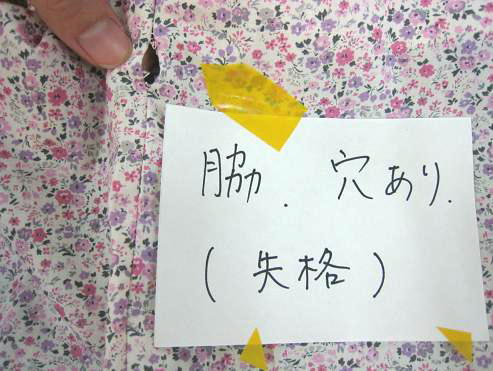 脇．穴あり．
(失格)